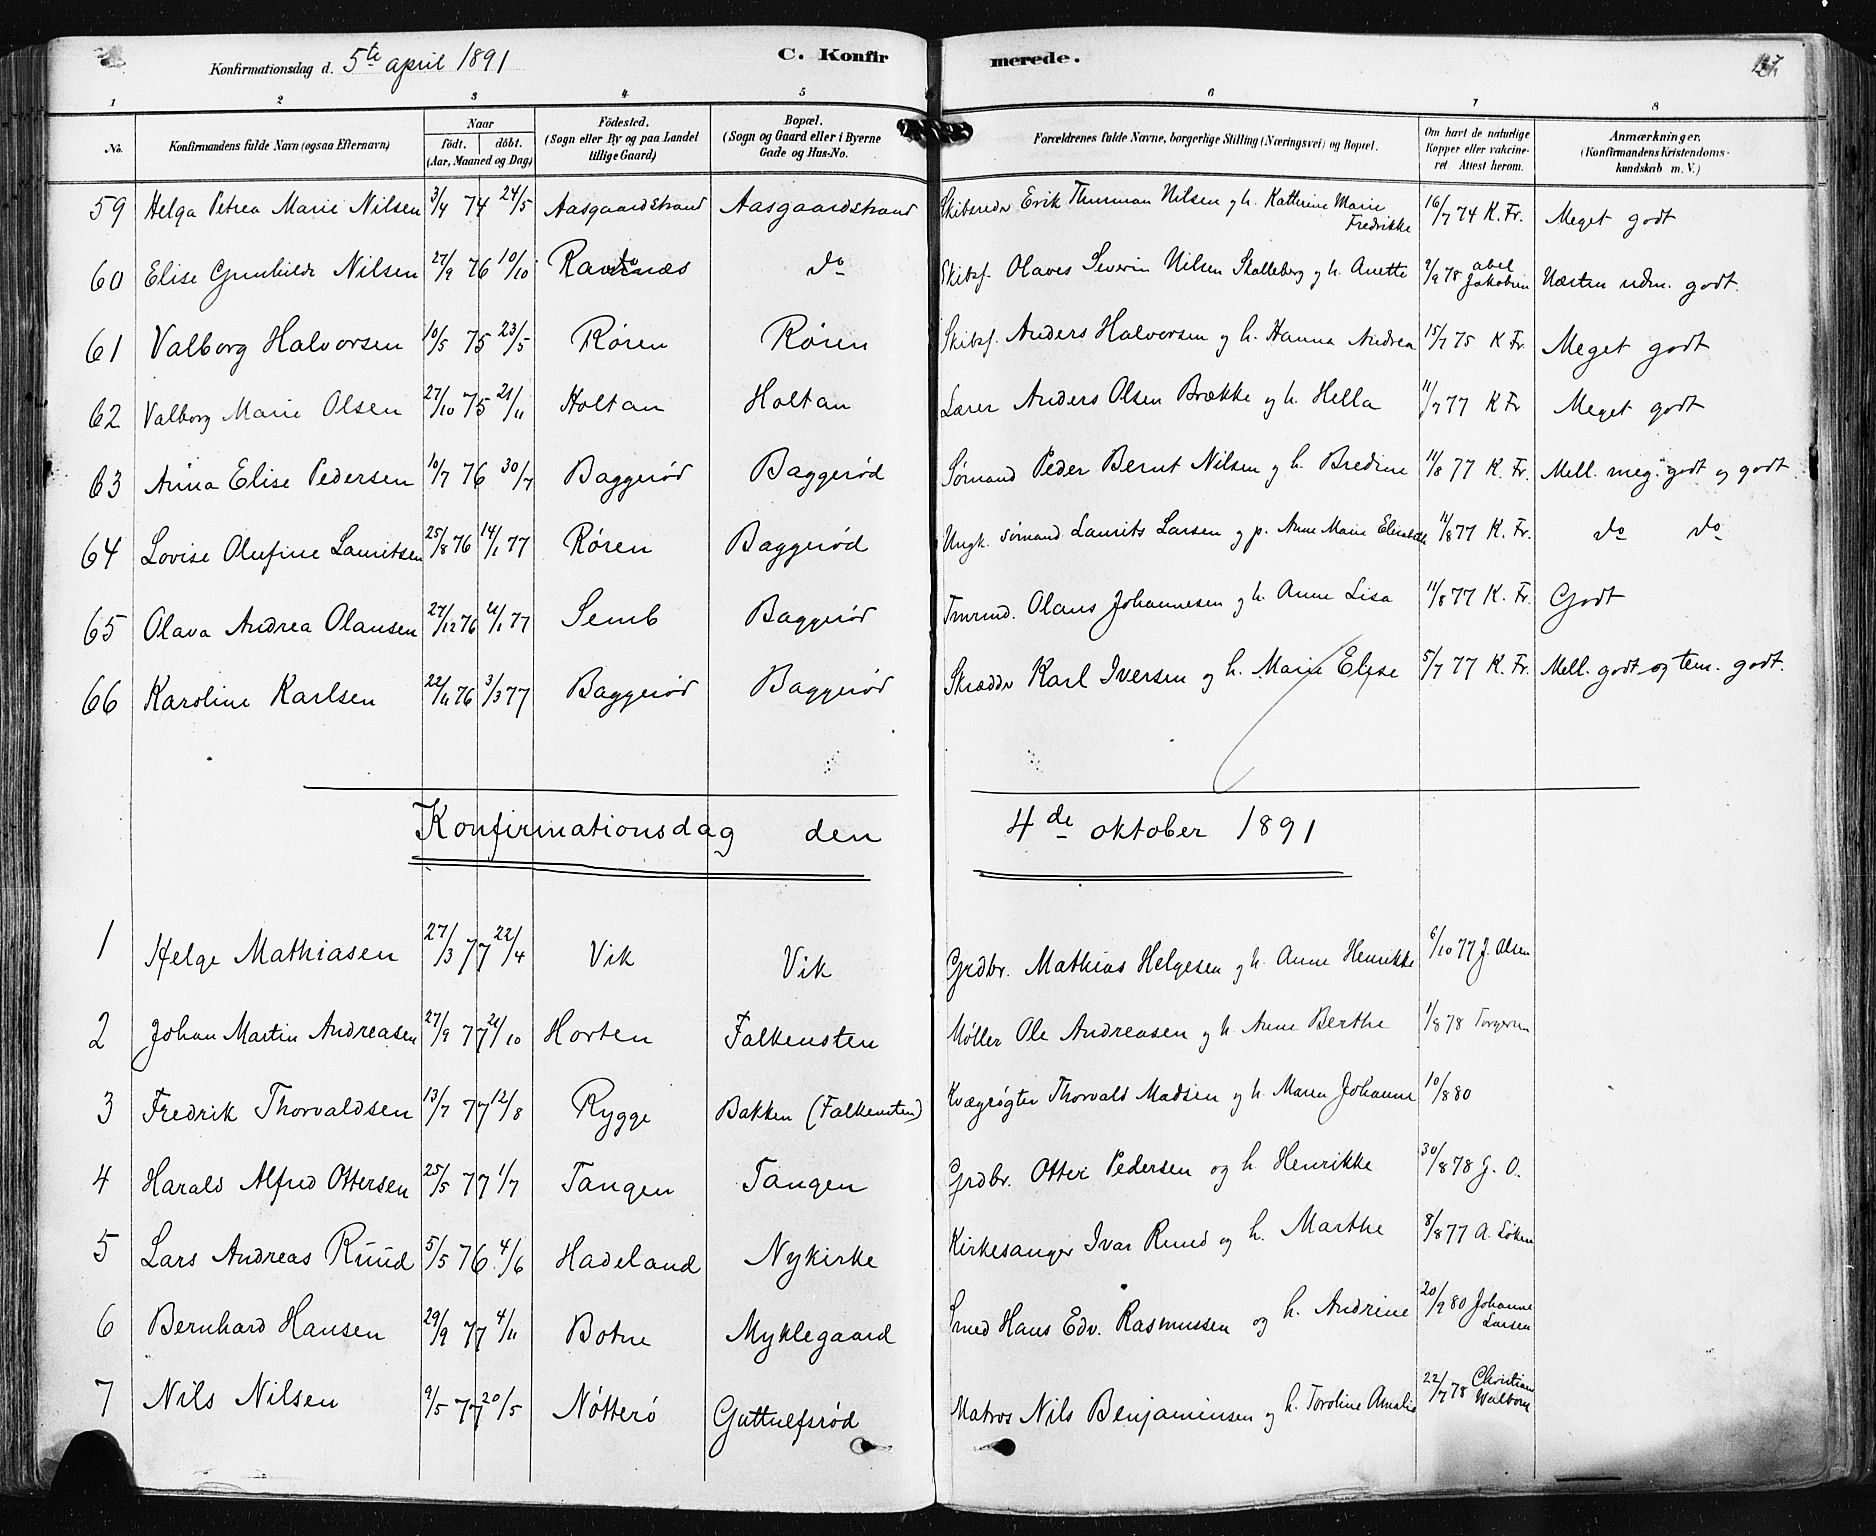 Konfirmationsdag d. 5te april 1891 C. Konfirmerede. 127
1 2 3 4 5 6 7 8
No. Konfirmandens fulde Navn (ogsaa Efternavn) Naar født. døbt. (Aar, Maaned og Dag) Fødested. (Sogn eller By og paa Landet tillige Gaard) Bopæl. (Sogn og Gaard eller i Byerne Gade og Hus-No. Forældrenes fulde Navne, borgerlige Stilling (Næringsvei) og Bopæl. Om havt de naturlige Kopper eller vakcineret. Attest herom. Anmærkninger. (Konfirmandens Kristendomskundskab m. V.)
59 Helga Petrea Marie Nilsen 3/4 74 24/5 Aasgaardstrand Aasgaardstrand Skibsreder Erik Thurman Nilsen og h. Katherine Marie Fredrikke 16/7 74 K. Fr. Meget godt
60 Elise Gunhilde Nilsen 27/9 76 10/10 do Skibsf. Olaves Severin Nilsen Skalleberg og h. Anette 2/9 78 abel Jakobsen Næsten udm. godt.
61 Valborg Halvorsen 10/5 75 23/5 Røren Røren Skibsf. Anders Halvorsen og h. Hanna Andrea 15/7 75 K Fr. Meget godt
62 Valborg Marie Olsen 27/10 75 21/11 Holtan Holtan Lærer Anders Olsen Brække og h. Hella 11/7 77 K Fr Meget godt
63 Anna Elise Pedersen 10/7 76 30/7 Baggerød Baggerød Sømand Peder Bernt Nilsen og h. Bredine 11/8 77 K. Fr. Mell. meg. godt og godt
64 Lovise Olufine Lauritsen 25/8 76 14/1 77 Røren Baggerød Ungk. sømand Laurits Larsen og p. Anne Marie Elisabeth 11/8 77 K. Fr. do do
65 Olava Andrea Olausen 27/12 76 21/1 77 Semb Baggerød Tmrmd. Olaus Johannesen og h. Anne Lisa 11/8 77 K. Fr. Godt
66 Karoline Karlsen 22/11 76 3/3 77 Baggerød Baggerød Skrædder Karl Iversen og h. Marie Elise 5/7 77 K. Fr. Mell. godt og tem. godt.
Konfirmationsdag den 4de oktober 1891
1 Helge Mathiasen 27/3 77 22/4 Vik Vik Grdbr. Mathias Helgesen og h. Anne Henrikke 6/10 77 J. Olsen
2 Johan Martin Andreasen 27/9 77 21/10 Horten Falkensten Møller Ole Andreasen og h. Anne Berthe 1/8 78 Torgersen
3 Fredrik Thorvaldsen 13/7 77 12/8 Rygge Bakken (Falkensten) Kvægrøgter Thorvald Madsen og h. Maren Johanne 10/8 80
4 Harald Alfred Ottersen 25/5 77 1/7 Tangen Tangen Grdbr. Otter Pedersen og h. Henrikke 30/8 78 J. O.
5 Lars Andreas Ruud 5/5 76 4/6 Hadeland Nykirke Kirkesanger Ivar Ruud og h. Marthe 8/8 77 A.
6 Bernhard Hansen 29/9 77 4/11 Botne Myklegaard Smed Hans Edv. Rasmussen og h. Andrine 20/9 80 Johanne Larsen
7 Nils Nilsen 9/5 77 20/5 Nøtterø Guttulfsrød Matros Nils Benjaminsen og h. Toroline Amalie 22/7 78 Christian